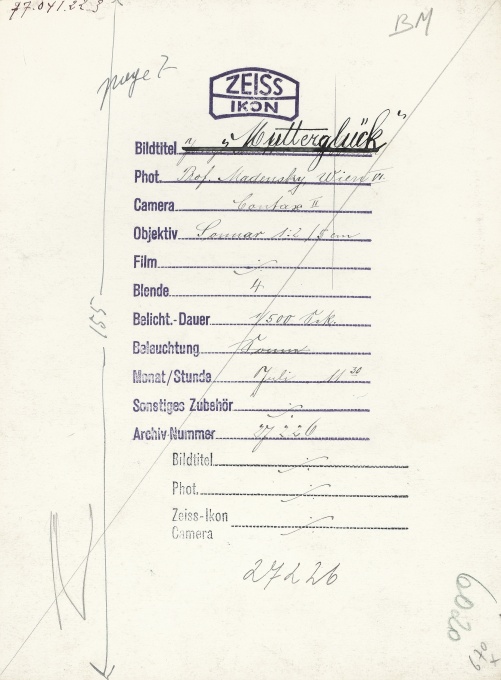 77.041.22 3
BM
page 7
ZEISS
IKON
Bildtitel „Mutterglück"
Phot. Prof. Madensky Wien VI.
Camera Contax II
Objektiv Sonnar 1:2 / 5 cm
Film
Blende 4
Belicht.-Dauer 1/500 Sek.
Beleuchtung Sonne
Monat/Stunde Juli 11 30
Sonstiges Zubehör
Archiv-Nummer 27226
Bildtitel
Phot.
Zeiss-Ikon
Camera
27226
6020